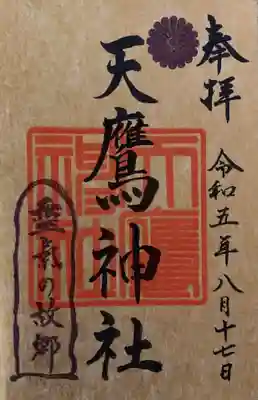 奉拝
天鷹神社
令和五年八月十七日
の故郷